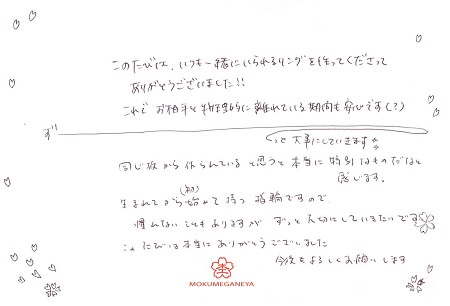 このたびは、いつも一緒にいられるリングを作ってくださって
ありがとうございました!!
これで お相手と物理的に離れている期間も安心です(?)
ずーっと大事にしていきます
同じ板から作られていると思うと本当に特別なものだなと
感じます。
生まれてから(初)始めて持つ指輪ですので、
慣れないこともありますが ずっと大切にしていきたいです
このたびは本当にありがとうございました
今後もよろしくお願いします
MOKUMEGANEYA